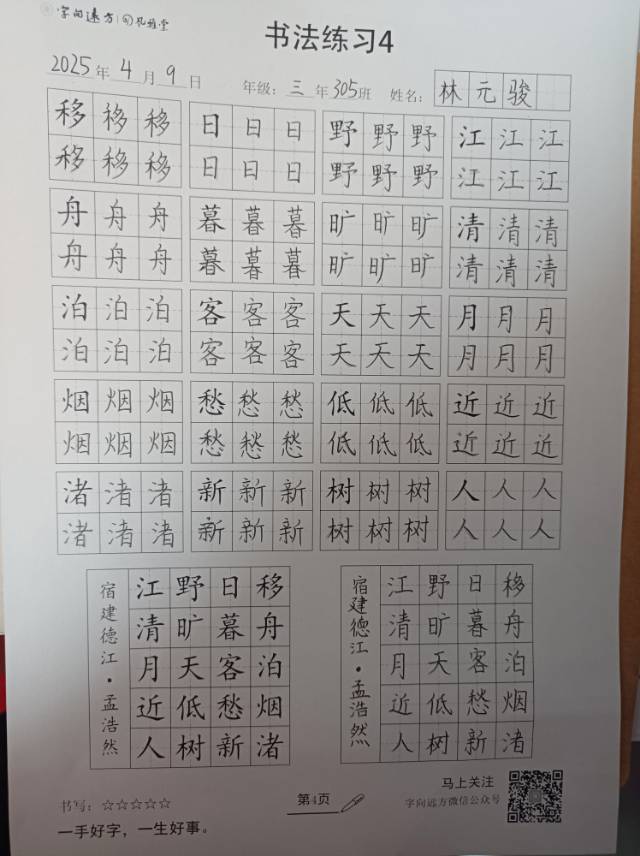 字向远方
书法练习4
2025年 4月 9日 年级：三年305班 姓名：林元骏
移移移 日日日 野野野 江江江
移移移 日日日 野野野 江江江
舟舟舟 暮暮暮 旷旷旷 清清清
舟舟舟 暮暮暮 旷旷旷 清清清
泊泊泊 客客客 天天天 月月月
泊泊泊 客客客 天天天 月月月
烟烟烟 愁愁愁 低低低 近近近
烟烟烟 愁愁愁 低低低 近近近
渚渚渚 新新新 树树树 人人人
渚渚渚 新新新 树树树 人人人
移舟泊烟渚
日暮客愁新
野旷天低树
江清月近人
宿建德江·孟浩然
移舟泊烟渚
日暮客愁新
野旷天低树
江清月近人
宿建德江·孟浩然
书写：☆☆☆☆☆
一手好字，一生好事。
第4页
马上关注
字向远方微信公众号